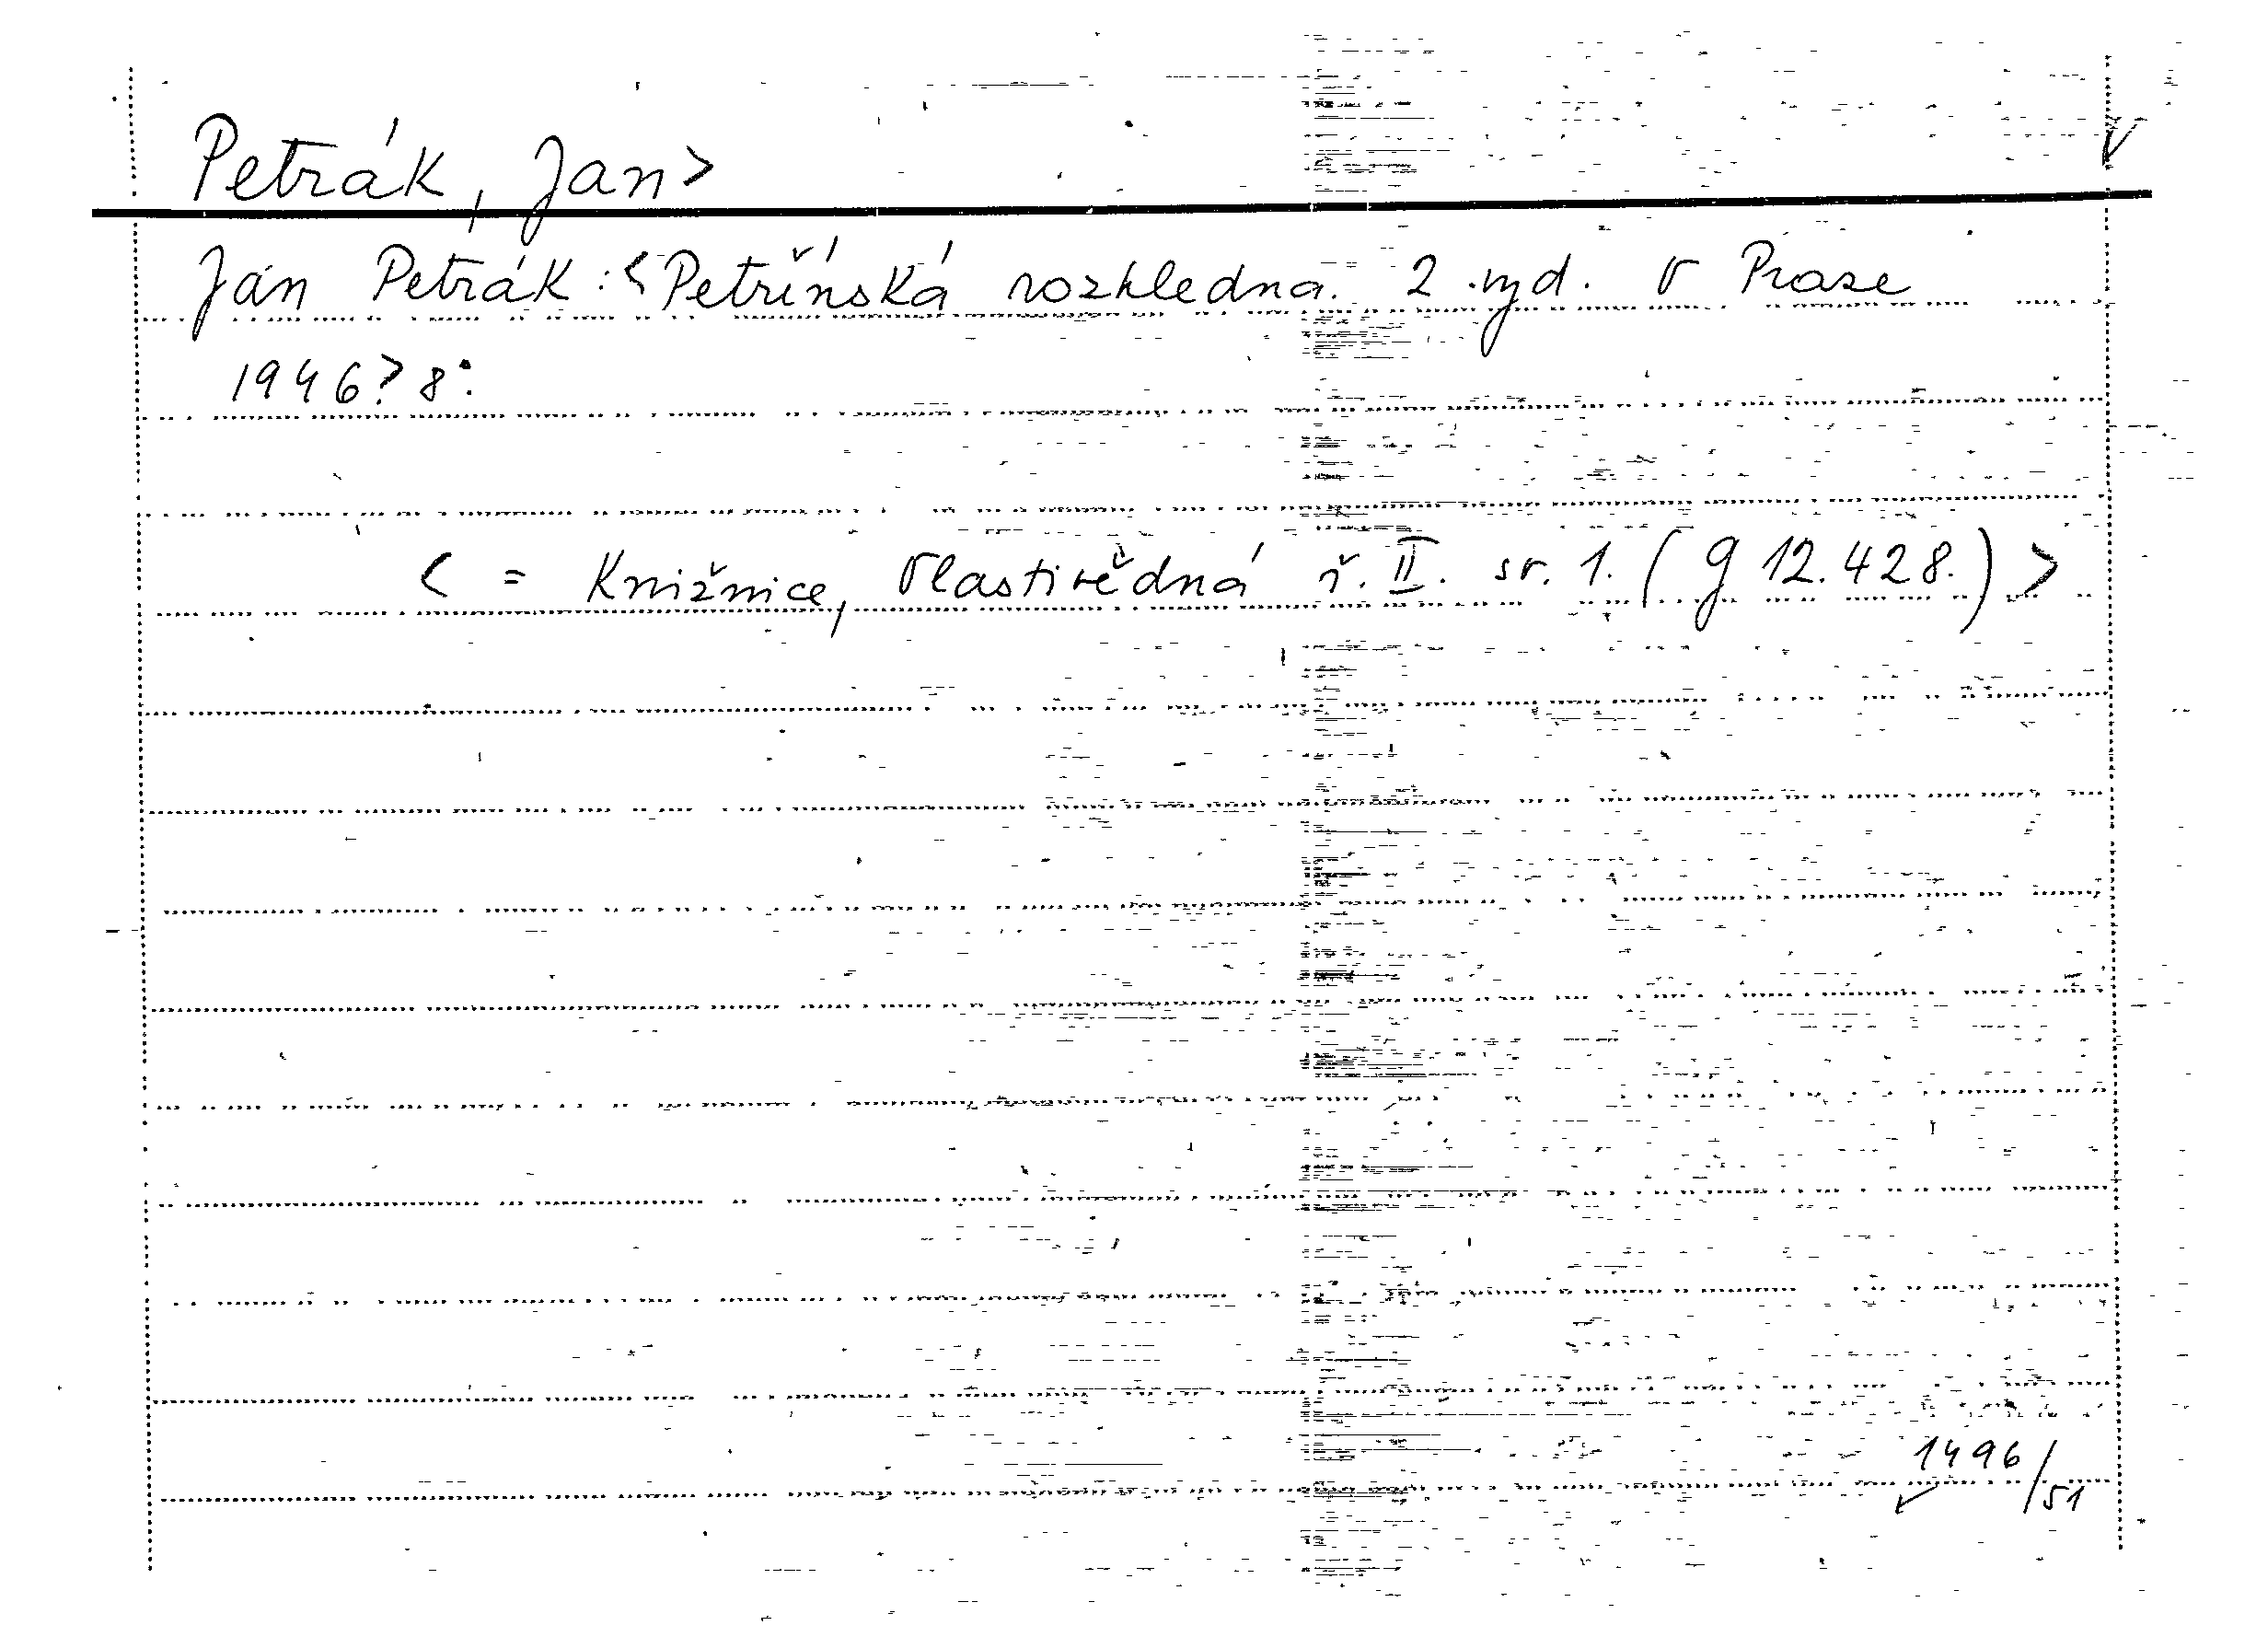 Petrák, Jan>
Jan Petrák: <Petřínská rozhledna. 2.vyd. V Praze
1946> 8°.
< = Knižnice, Vlastivědná ř. II. sv. 1. (g 12.428.) >
1496/51